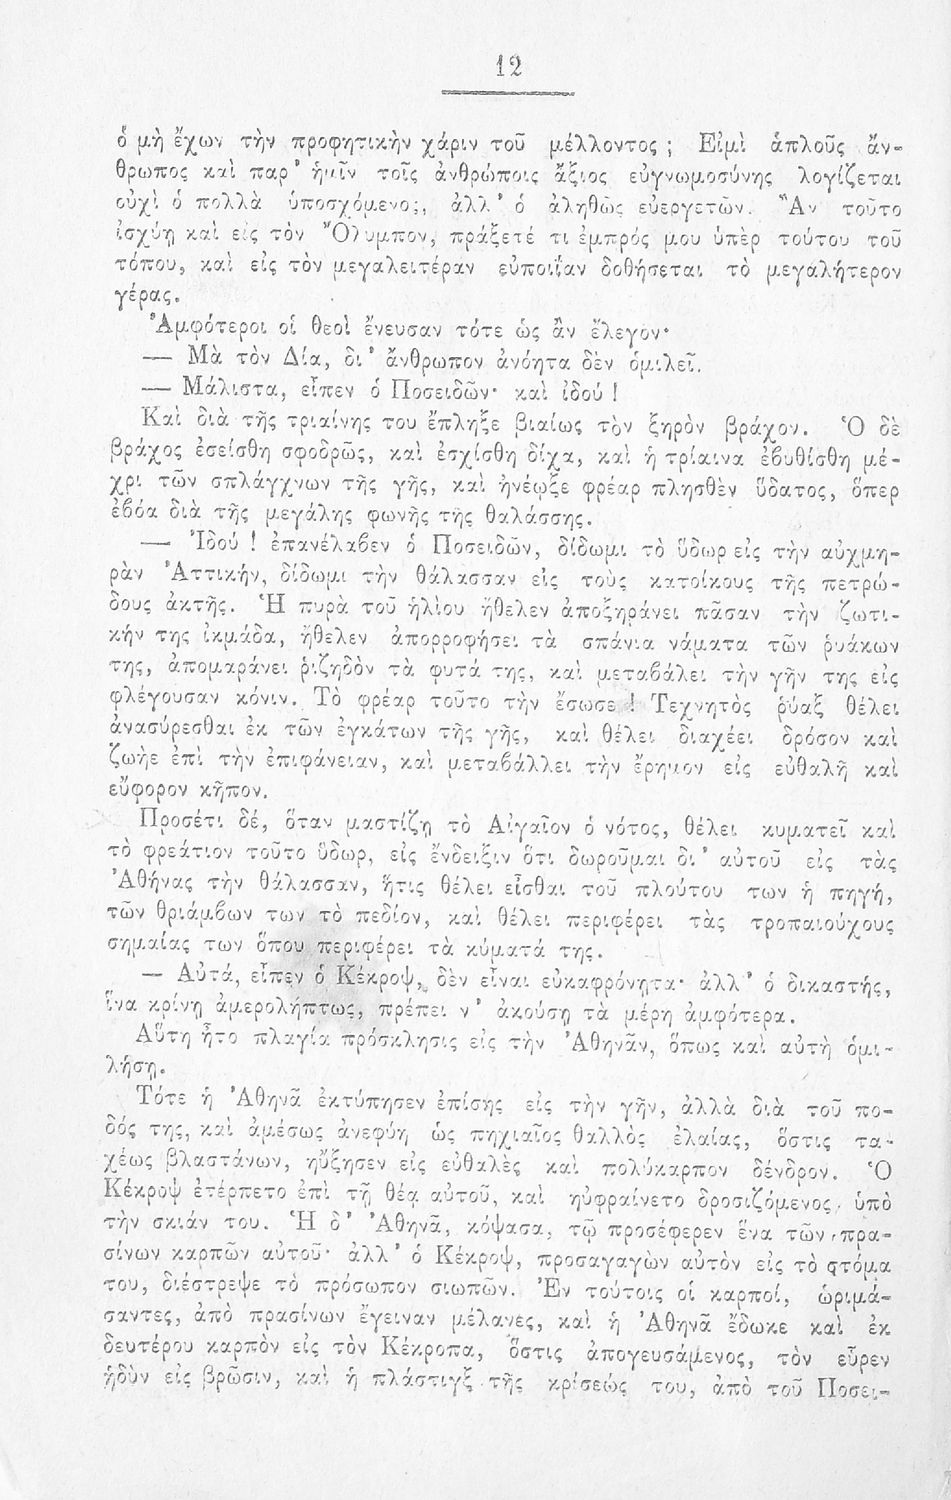 12
ὁ μὴ ἔχων τὴν προφητικὴν χάριν τοῦ μέλλοντος ; Εἰμὶ ἁπλοῦς ἄν-
θρωπος καὶ παρ᾿ ἡμῖν τοῖς ἀνθρώποις ἄξιος εὐγνωμοσύνης λογίζεται
οὐχὶ ὁ πολλὰ ὑποσχόμενος, ἀλλ᾿ ὁ ἀληθῶς εὐεργετῶν. Ἂν τοῦτο
ἰσχύῃ καὶ εἰς τὸν Ὄλυμπον, πράξετέ τι ἐμπρός μου ὑπὲρ τούτου τοῦ
τόπου, καὶ εἰς τὸν μεγαλειτέραν εὐποιΐαν δοθήσεται τὸ μεγαλήτερον
γέρας.
Ἀμφότεροι οἱ θεοὶ ἔνευσαν τότε ὡς ἂν ἔλεγον·
— Μὰ τὸν Δία, δι᾿ ἄνθρωπον ἀνόητα δὲν ὁμιλεῖ.
— Μάλιστα, εἶπεν ὁ Ποσειδῶν· καὶ ἰδού !
Καὶ διὰ τῆς τριαίνης του ἔπληξε βιαίως τὸν ξηρὸν βράχον. Ὁ δὲ
βράχος ἐσείσθη σφοδρῶς, καὶ ἐσχίσθη δίχα, καὶ ἡ τρίαινα ἐβυθίσθη μέ-
χρι τῶν σπλάγχνων τῆς γῆς, καὶ ἠνέῳξε φρέαρ πλησθὲν ὕδατος, ὅπερ
ἐβόα διὰ τῆς μεγάλης φωνῆς τῆς θαλάσσης.
— Ἰδού ! ἐπανέλαβεν ὁ Ποσειδῶν, δίδωμι τὸ ὕδωρ εἰς τὴν αὐχμη-
ρὰν Ἀττικήν, δίδωμι τὴν θάλασσαν εἰς τοὺς κατοίκους τῆς πετρώ-
δους ἀκτῆς. Ἡ πυρὰ τοῦ ἡλίου ἤθελεν ἀποξηράνει πᾶσαν τὴν ζωτι-
κήν της ἰκμάδα, ἤθελεν ἀπορροφήσει τὰ σπάνια νάματα τῶν ῥυάκων
της, ἀπομαράνει ῥιζηδὸν τὰ φυτά της, καὶ μεταβάλει τὴν γῆν της εἰς
φλέγουσαν κόνιν. Τὸ φρέαρ τοῦτο τὴν ἔσωσε ! Τεχνητὸς ῥύαξ θέλει
ἀνασύρεσθαι ἐκ τῶν ἐγκάτων τῆς γῆς, καὶ θέλει διαχέει δρόσον καὶ
ζωὴε ἐπὶ τὴν ἐπιφάνειαν, καὶ μεταβάλλει τὴν ἔρημον εἰς εὐθαλῆ καὶ
εὔφορον κῆπον.
Προσέτι δέ, ὅταν μαστίζῃ τὸ Αἰγαῖον ὁ νότος, θέλει κυματεῖ καὶ
τὸ φρεάτιον τοῦτο ὕδωρ, εἰς ἔνδειξιν ὅτι δωροῦμαι δι᾿ αὐτοῦ εἰς τὰς
Ἀθήνας τὴν θάλασσαν, ἥτις θέλει εἶσθαι τοῦ πλούτου των ἡ πηγή,
τῶν θριάμβων των τὸ πεδίον, καὶ θέλει περιφέρει τὰς τροπαιούχους
σημαίας των ὅπου περιφέρει τὰ κύματά της.
— Αὐτά, εἶπεν ὁ Κέκροψ, δὲν εἶναι εὐκαφρόνητα· ἀλλ᾿ ὁ δικαστής,
ἵνα κρίνῃ ἀμερολήπτως, πρέπει ν᾿ ἀκούσῃ τὰ μέρη ἀμφότερα.
Αὕτη ἦτο πλαγία πρόσκλησις εἰς τὴν Ἀθηνᾶν, ὅπως καὶ αὐτὴ ὁμι-
λήσῃ.
Τότε ἡ Ἀθηνᾶ ἐκτύπησεν ἐπίσης εἰς τὴν γῆν, ἀλλὰ διὰ τοῦ πο-
δός της, καὶ ἀμέσως ἀνεφύη ὡς πηχιαῖος θαλλὸς ἐλαίας, ὅστις τα-
χέως βλαστάνων, ηὔξησεν εἰς εὐθαλὲς καὶ πολύκαρπον δένδρον. Ὁ
Κέκροψ ἐτέρπετο ἐπὶ τῇ θέᾳ αὐτοῦ, καὶ ηὐφραίνετο δροσιζόμενος ὑπὸ
τὴν σκιάν του. Ἡ δ᾿ Ἀθηνᾶ, κόψασα, τῷ προσέφερεν ἕνα τῶν πρα-
σίνων καρπῶν αὐτοῦ· ἀλλ᾿ ὁ Κέκροψ, προσαγαγὼν αὐτὸν εἰς τὸ στόμα
του, διέστρεψε τὸ πρόσωπον σιωπῶν. Ἐν τούτοις οἱ καρποί, ὡριμά-
σαντες, ἀπὸ πρασίνων ἔγειναν μέλανες, καὶ ἡ Ἀθηνᾶ ἔδωκε καὶ ἐκ
δευτέρου καρπὸν εἰς τὸν Κέκροπα, ὅστις ἀπογευσάμενος, τὸν εὗρεν
ἡδὺν εἰς βρῶσιν, καὶ ἡ πλάστιγξ τῆς κρίσεώς του, ἀπὸ τοῦ Ποσει-